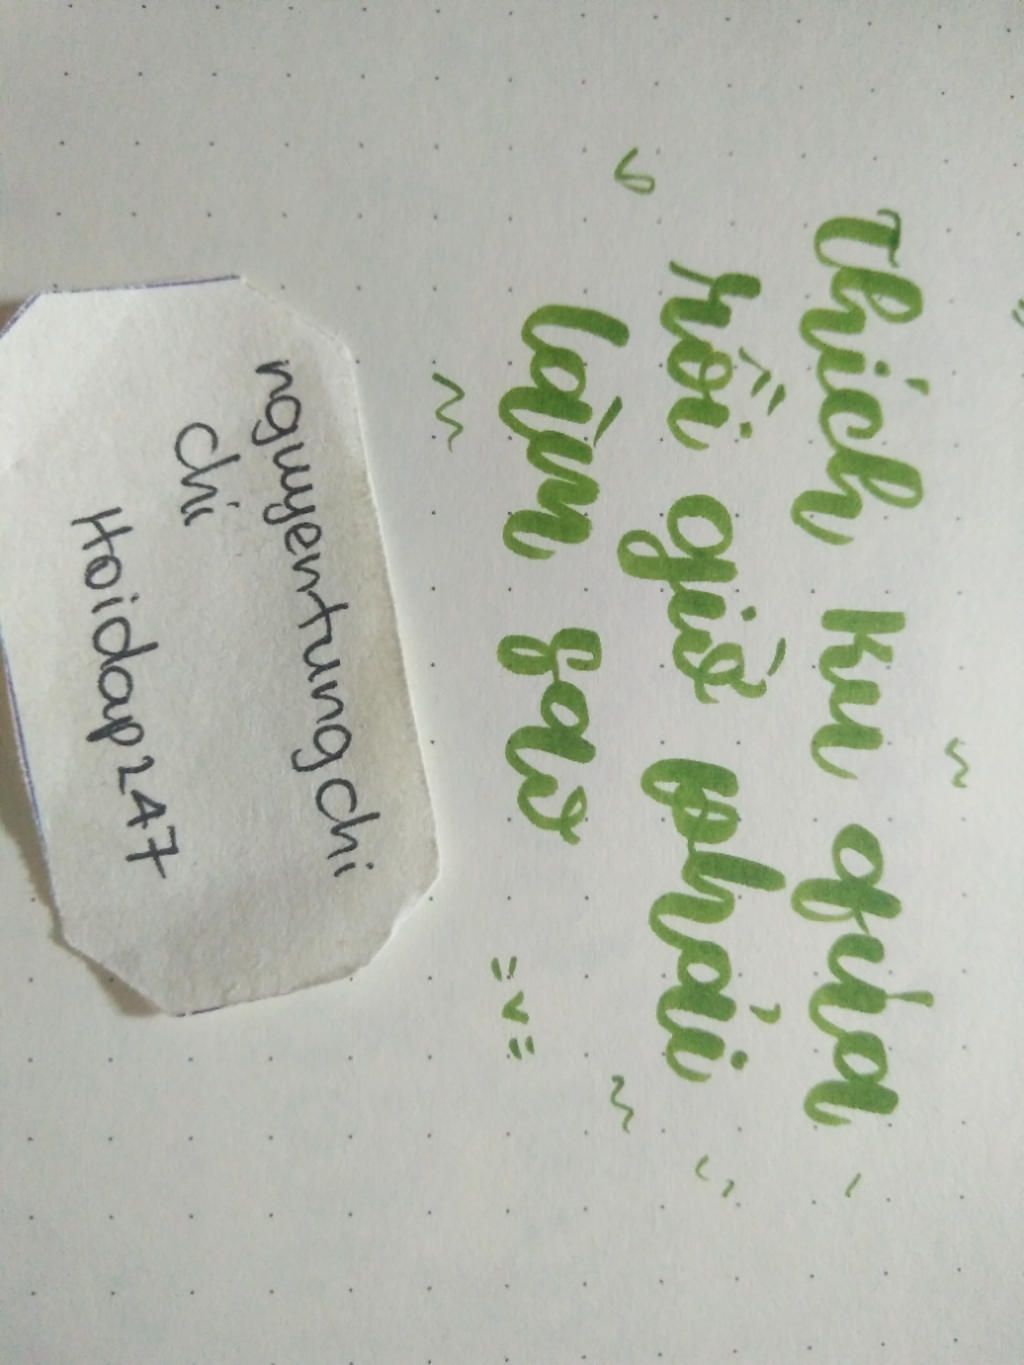 thích ku quá
rồi giờ phải
làm sao
=v=
nguyentungchi
chi
Hoidap247